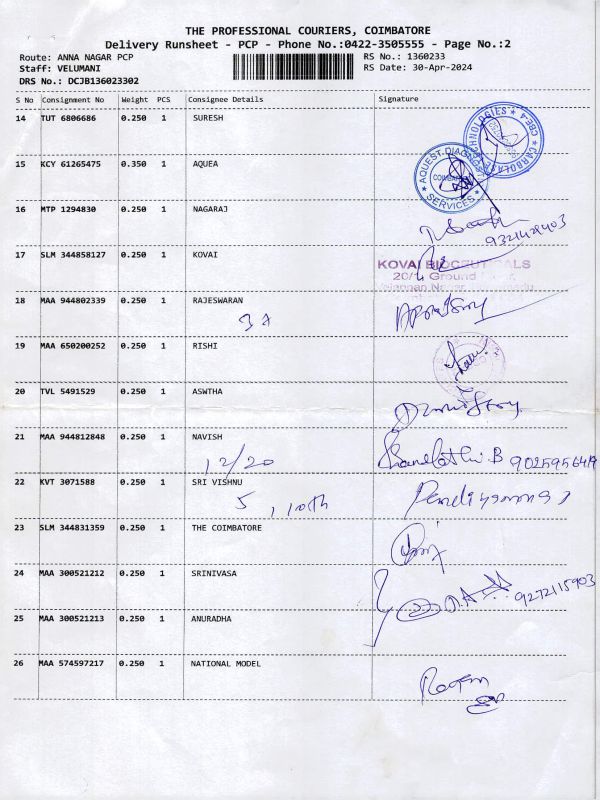 THE PROFESSIONAL COURIERS, COIMBATORE
Delivery Runsheet - PCP - Phone No.:0422-3505555 - Page No.:2
Route: ANNA NAGAR PCP RS No.: 1360233
Staff: VELUMANI RS Date: 30-Apr-2024
DRS No.: DCJB136023302
S No Consignment No Weight PCS Consignee Details Signature
14 TUT 6806686 0.250 1 SURESH
15 KCY 61265475 0.350 1 AQUEA
AQUEST DIAGNOSTIC SERVICES
16 MTP 1294830 0.250 1 NAGARAJ
17 SLM 344858127 0.250 1 KOVAI
KOVAI BIOCEUTICALS
20/1 Ground
18 MAA 944802339 0.250 1 RAJESWARAN
3A
19 MAA 650200252 0.250 1 RISHI
20 TVL 5491529 0.250 1 ASWTHA
21 MAA 944812848 0.250 1 NAVISH
12/20
22 KVT 3071588 0.250 1 SRI VISHNU
5
23 SLM 344831359 0.250 1 THE COIMBATORE
24 MAA 300521212 0.250 1 SRINIVASA
9272115903
25 MAA 300521213 0.250 1 ANURADHA
26 MAA 574597217 0.250 1 NATIONAL MODEL